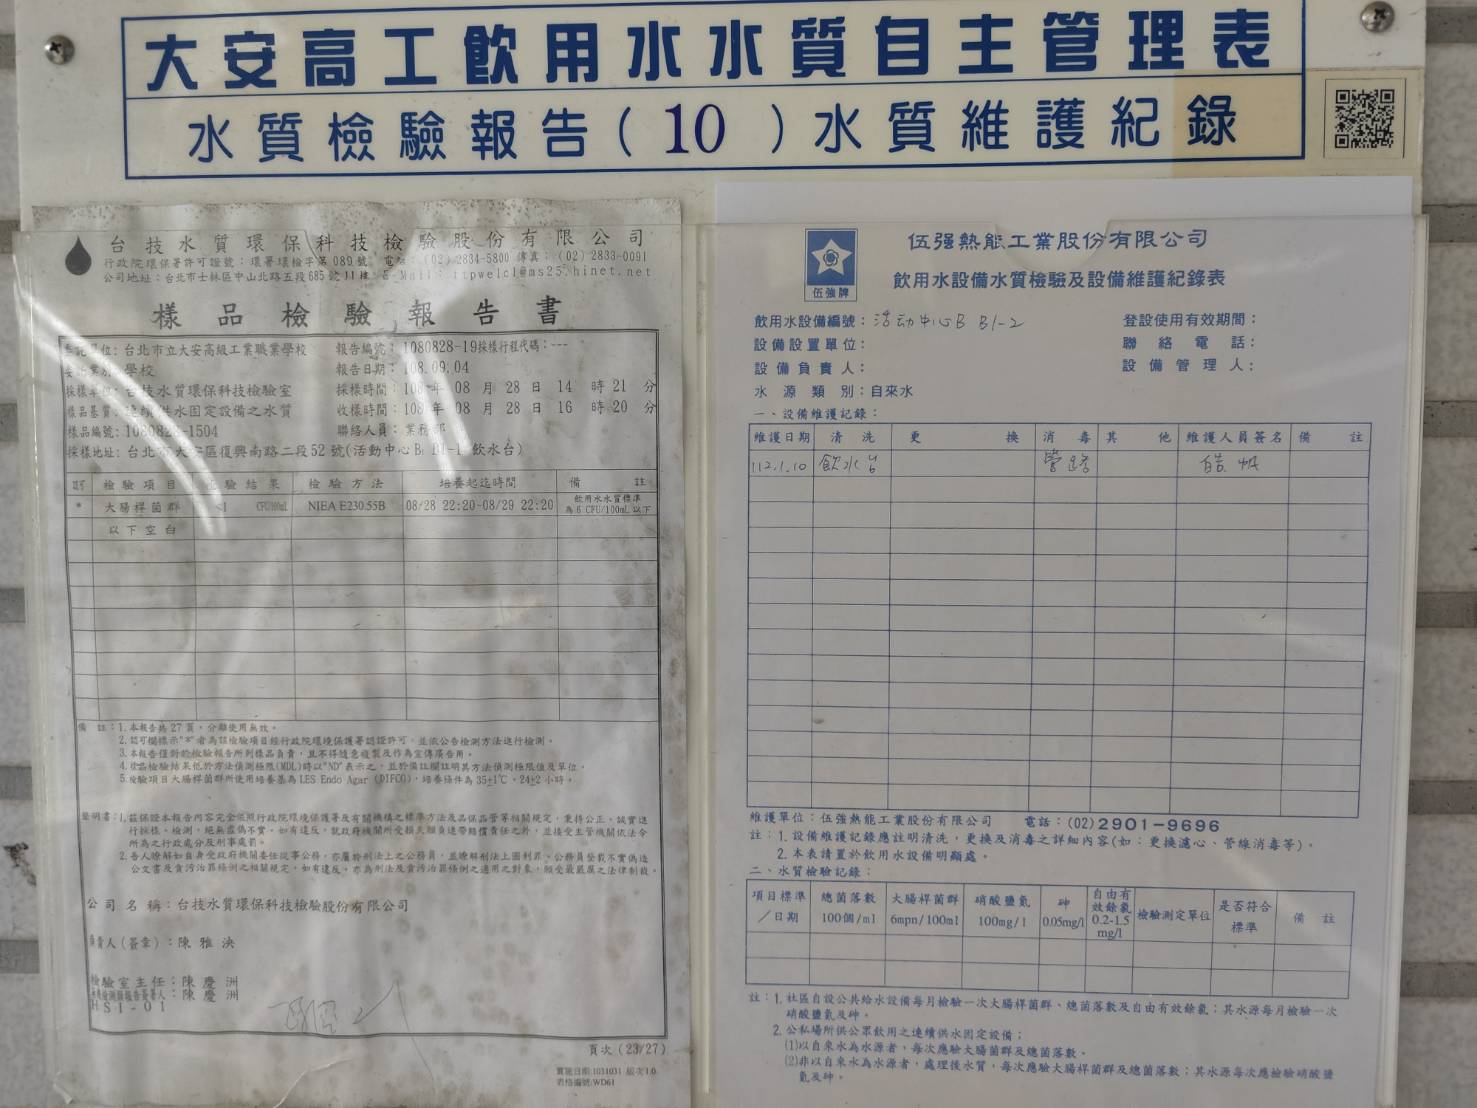 大安高工飲用水水質自主管理表
水質檢驗報告(10)水質維護紀錄
台技水質環保科技檢驗股份有限公司
行政院環保署許可證號：環署環檢字第089號 電話：(02)2834-5800 傳真：(02)2833-0091
公司地址：台北市士林區中山北路五段685號11樓 E-Mail：ttpwelcl@ms25.hinet.net
樣品檢驗報告書
委託單位：台北市立大安高級工業職業學校 報告編號：1080828-19採樣行程代碼：---
學校 報告日期：108.09.04
採樣單位：台技水質環保科技檢驗室 採樣時間：108年08月28日14時21分
樣品基質：連續供水固定設備之水質 收樣時間：108年08月28日16時20分
樣品編號：1080828-1504 聯絡人員：業務部
採樣地址：台北市大安區復興南路二段52號(活動中心B B1-1 飲水台)
檢驗項目 檢驗結果 檢驗方法 培養起迄時間 備註
* 大腸桿菌群 <1 CFU/100mL NIEA E230.55B 08/28 22:20-08/29 22:20 飲用水水質標準
為6 CFU/100mL以下
以下空白
備註：1.本報告共27頁，分離使用無效。
2.認可欄標示"*"者為該檢驗項目經行政院環境保護署認證許可，並依公告檢測方法進行檢測。
3.本報告僅對於檢驗報告所列樣品負責，且不得隨意複製及作為宣傳廣告用。
4.樣品檢驗結果低於方法偵測極限(MDL)時以"ND"表示之，並於備註欄註明其方法偵測極限值及單位。
5.檢驗項目大腸桿菌群所使用培養基為LES Endo Agar (DIFCO)，培養條件為35±1℃，24±2小時。
聲明書：1.茲保證本報告內容完全依照行政院環境保護署及有關機構之標準方法及品保品管等相關規定，秉持公正、誠實進
行採樣、檢測，絕無虛偽不實，如有違反，就政府機關所受損失願負連帶賠償責任之外，並接受主管機關依法令
所為之行政處分及刑事處罰。
2.吾人瞭解如自身受政府機關委任從事公務，亦屬於刑法上之公務員，並瞭解刑法上圖利罪、公務員登載不實偽造
公文書及貪污治罪條例之相關規定，如有違反，亦為刑法及貪污治罪條例之適用之對象，願受最嚴厲之法律制裁。
公司名稱：台技水質環保科技檢驗股份有限公司
負責人(簽章)：陳雅泱
檢驗室主任：陳慶洲
檢測報告簽署人：陳慶洲
HSI-01
頁次(23/27)
實施日期:1031031 版次1.0
表格編號:WD61
伍強牌
伍強熱能工業股份有限公司
飲用水設備水質檢驗及設備維護紀錄表
飲用水設備編號：活动中心B B1-2 登設使用有效期間：
設備設置單位： 聯絡電話：
設備負責人： 設備管理人：
水源類別：自來水
一、設備維護記錄：
維護日期 清洗 更換 消毒 其他 維護人員簽名 備註
112.1.10 飲水台 管路
維護單位：伍強熱能工業股份有限公司 電話：(02)2901-9696
註：1.設備維護記錄應註明清洗，更換及消毒之詳細內容(如：更換濾心、管線消毒等)。
2.本表請置於飲用水設備明顯處。
二、水質檢驗記錄：
項目標準／日期 總菌落數100個/ml 大腸桿菌群6mpn/100ml 硝酸鹽氮100mg/l 砷0.05mg/l 自由有效餘氯0.2-1.5mg/l 檢驗測定單位 是否符合標準 備註
註：1.社區自設公共給水設備每月檢驗一次大腸桿菌群、總菌落數及自由有效餘氯；其水源每月檢驗一次
硝酸鹽氮及砷。
2.公私場所供公眾飲用之連續供水固定設備；
(1)以自來水為水源者，每次應驗大腸菌群及總菌落數。
(2)非以自來水為水源者，處理後水質，每次應驗大腸桿菌群及總菌落數；其水源每次應檢驗硝酸鹽
氮及砷。